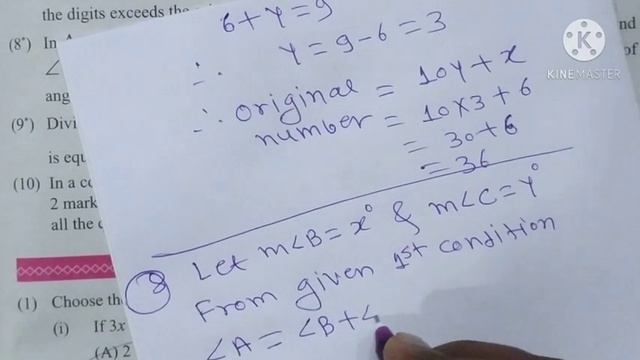 the digits exceeds the
(8*) In
∠
ang
(9*) Divi
is equ
(10) In a co
2 mark
all the
(1) Choose th
(i) If 3x
(A) 2
6+y=9
∴ y=9-6=3
∴ original = 10y+x
number = 10×3+6
= 30+6
= 36
8 Let m∠B=x° & m∠C=y°
From given 1st condition
∠A = ∠B+∠
nd
of
KINEMASTER